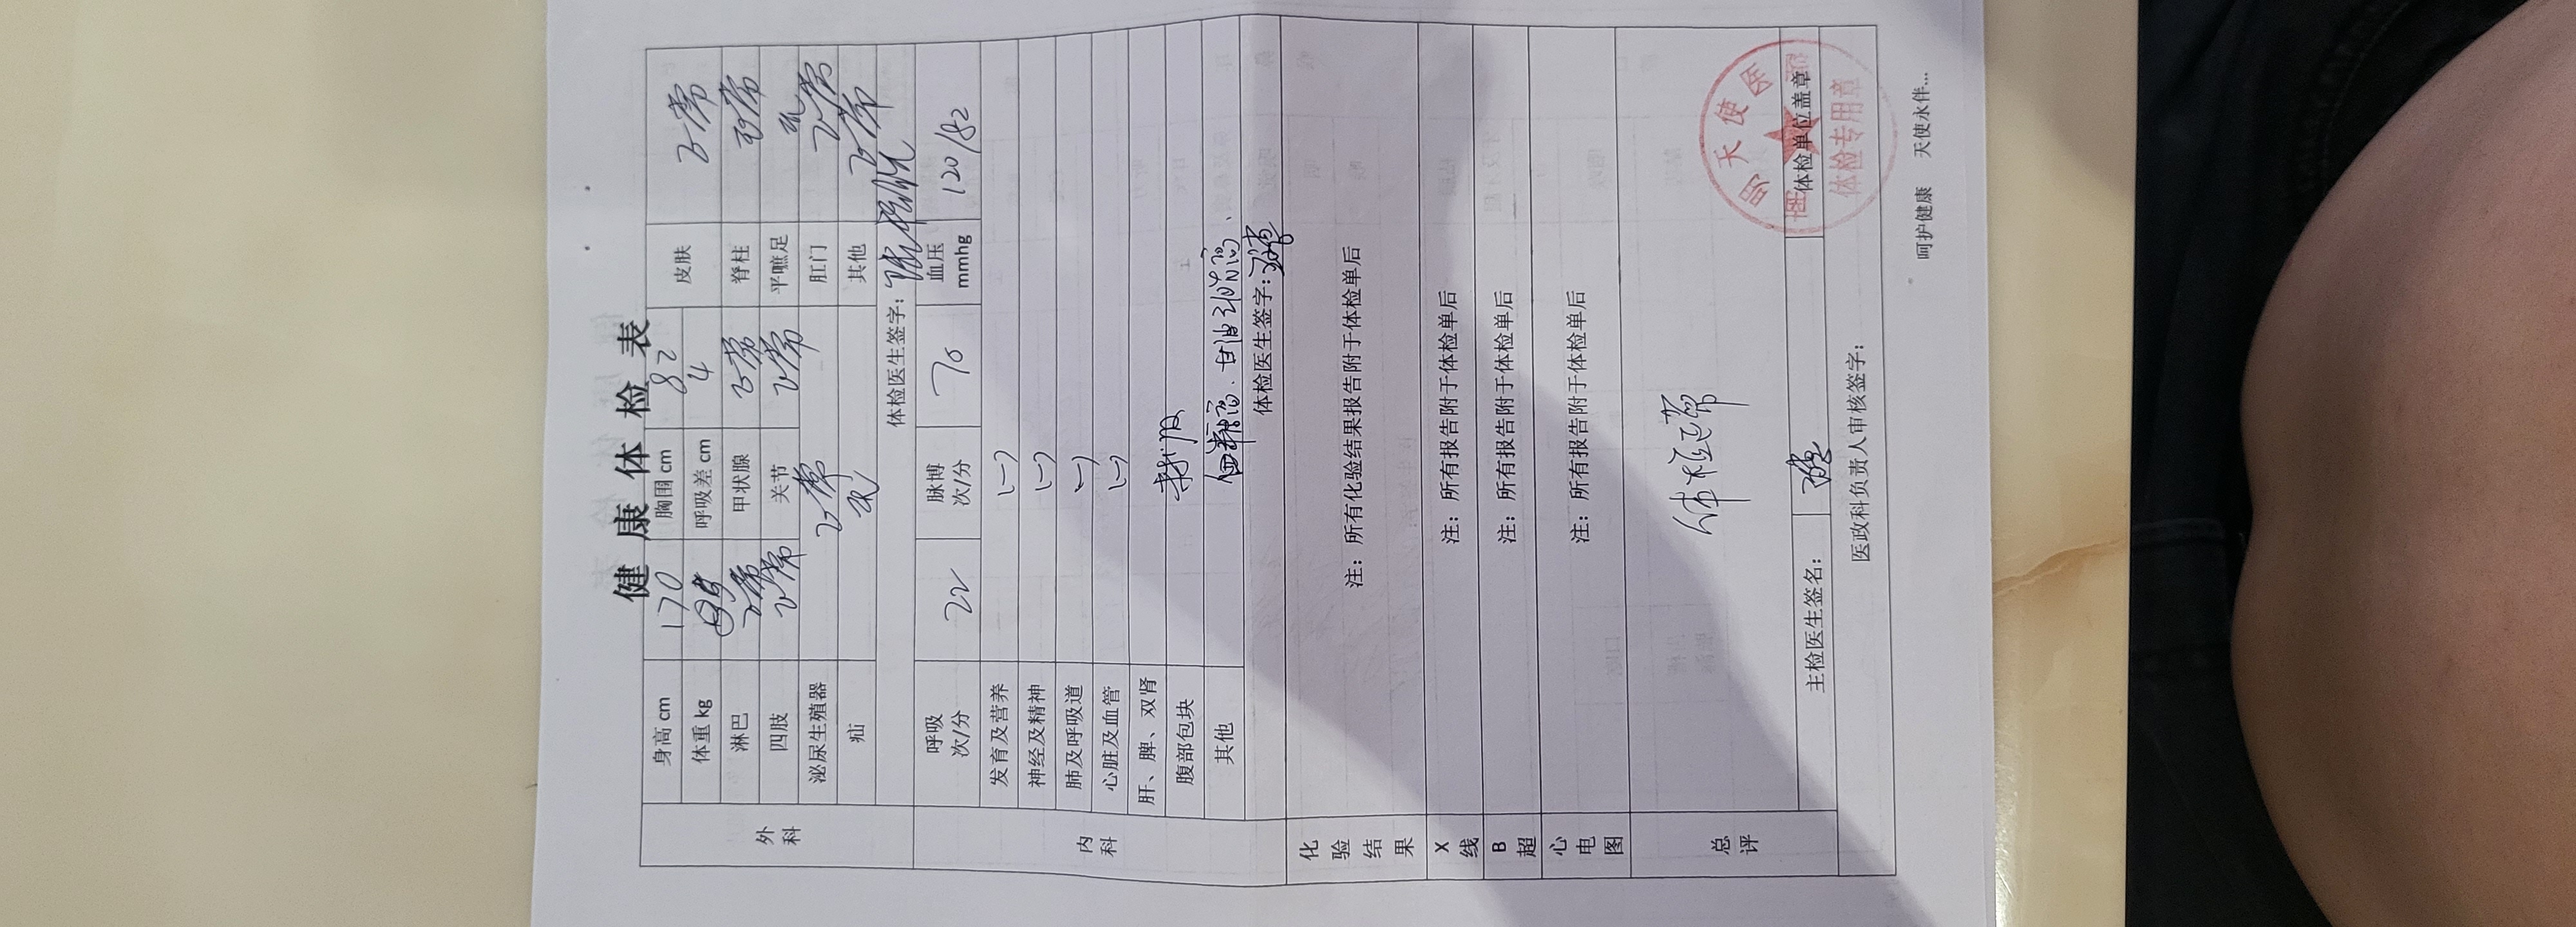 健 康 体 检 表
外科 身高 cm 170 胸围 cm 82 皮肤 正常
体重 kg 呼吸差 cm 4
淋巴 正常 甲状腺 正常 脊柱 正常
四肢 正常 关节 正常 平蹠足 无
泌尿生殖器 正常 肛门 正常
疝 无 其他 正常
体检医生签字：
内科 呼吸 次/分 22 脉博 次/分 70 血压 mmhg 120/82
发育及营养 (一)
神经及精神 (一)
肺及呼吸道 (一)
心脏及血管 (一)
肝、脾、双肾
腹部包块
其他 血糖高. 甘油三酯高、
体检医生签字：
化验结果 注：所有化验结果报告附于体检单后
X线 注：所有报告附于体检单后
B超 注：所有报告附于体检单后
心电图 注：所有报告附于体检单后
总评 体检正常
主检医生签名： 体检单位盖章
明天使医
体检专用章
医政科负责人审核签字：
呵护健康 天使永伴...